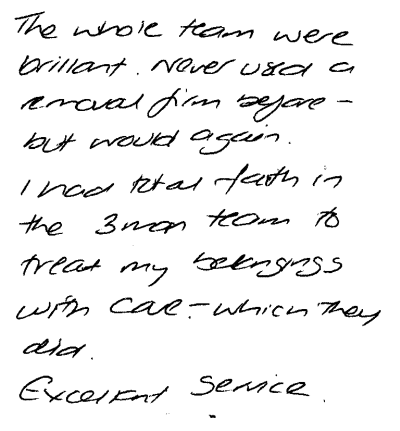 The whole team were
brilliant. Never used a
removal firm before -
but would again.
I had total faith in
the 3 man team to
treat my belongings
with care - which they
did.
Excellent Service.